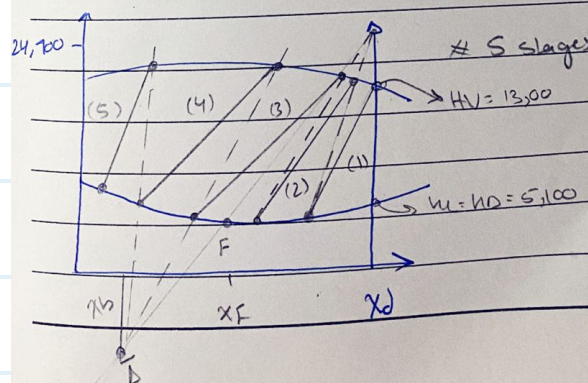 24,700
# 5 stages
(5)
(4)
(3)
HV = 13,00
(2)
(1)
hL = hD = 5,100
F
xb
xF
xd